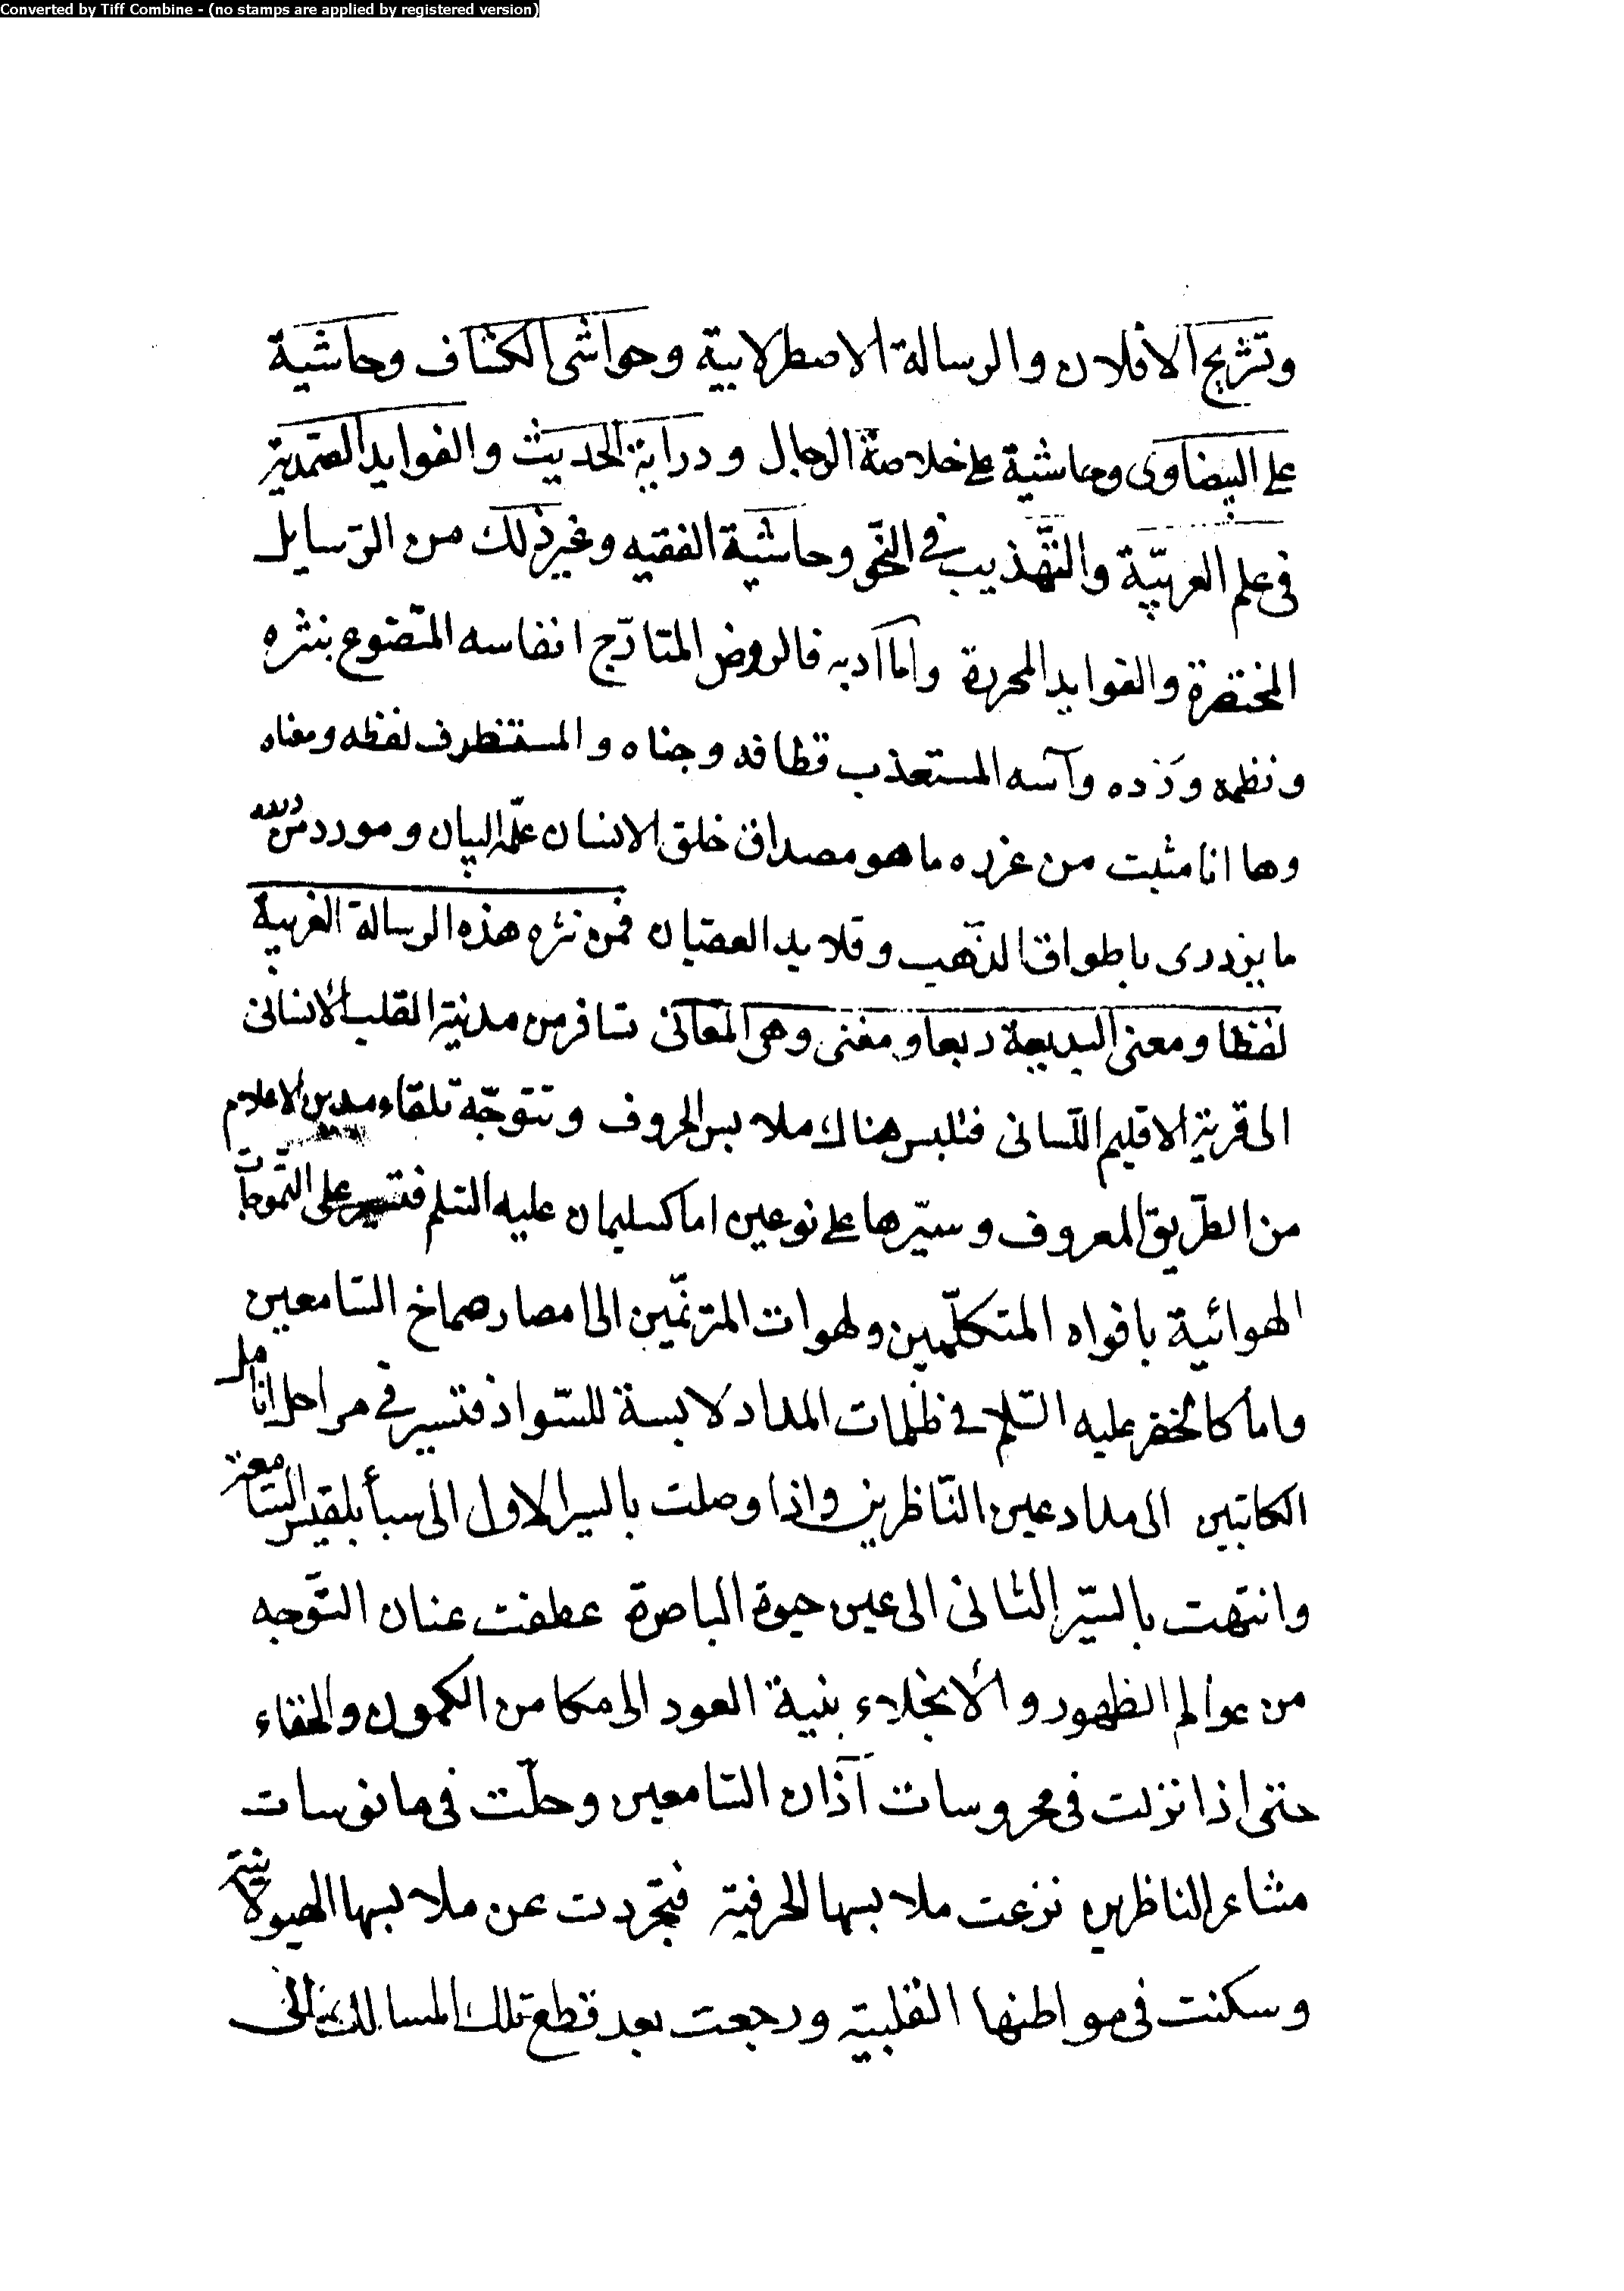 Converted by Tiff Combine - (no stamps are applied by registered version)
وتشريح الافلاك والرسالة الاصطرلابية وحواشى الكشاف وحاشية
على البيضاوى وحاشية على خلاصة الرجال ودراية الحديث والفوايد الصمدية
فى علم العربيّة والتّهذيب فى النّحو وحاشية الفقيه وغير ذلك من الرّسايل
المختصرة والفوايد المحررة واما ادبه فالروض المتأرّج انفاسه المتضوع بنثره
ونظمه ورده وآسه المستعذب قطافه وجناه والمستظرف لفظه ومعناه
وها انا مثبت من غرره ما هو مصداق خلق الانسان علّمه البيان ومورد من درره
ما يزدرى باطواق الذّهب وقلايد العقيان فمن نثره هذه الرسالة الغريبة
لفظا ومعنى البديعة ربعا ومغنى وهى المعانى تسافر من مدينة القلب الانسانى
الى قرية الاقليم اللّسانى فتلبس هناك ملابس الحروف وتتوجّه تلقاء مدين الاعلام
من الطّريق المعروف وسيّرها على نوعين اما كسليمان عليه السّلم فتسير على التّموجات
الهوائية بافواه المتكلّمين ولهوات المترنّمين الى امصار صماخ السّامعين
واما كالخضر عليه السّلام فى ظلمات المداد لابسة للسّواد فتسير فى مراحل انامل
الكاتبين الى مداد عين النّاظرين واذا وصلت بالسير الاول الى سبأ بلقيس السّامعة
وانتهت بالسّير الثانى الى عين حيوة الباصرة عطفت عنان التّوجه
من عوالم الظهور والأنجلاء بنية العود الى مكامن الكمون والخفاء
حتى اذا نزلت فى محروسات آذان السّامعين وحلّت فى مانوسات
مشاعر الناظرين نزعت ملابسها الحرفية فتجردت عن ملابسها الهيولانية
وسكنت فى مواطنها القلبية ورجعت بعد قطع تلك المسالك الى